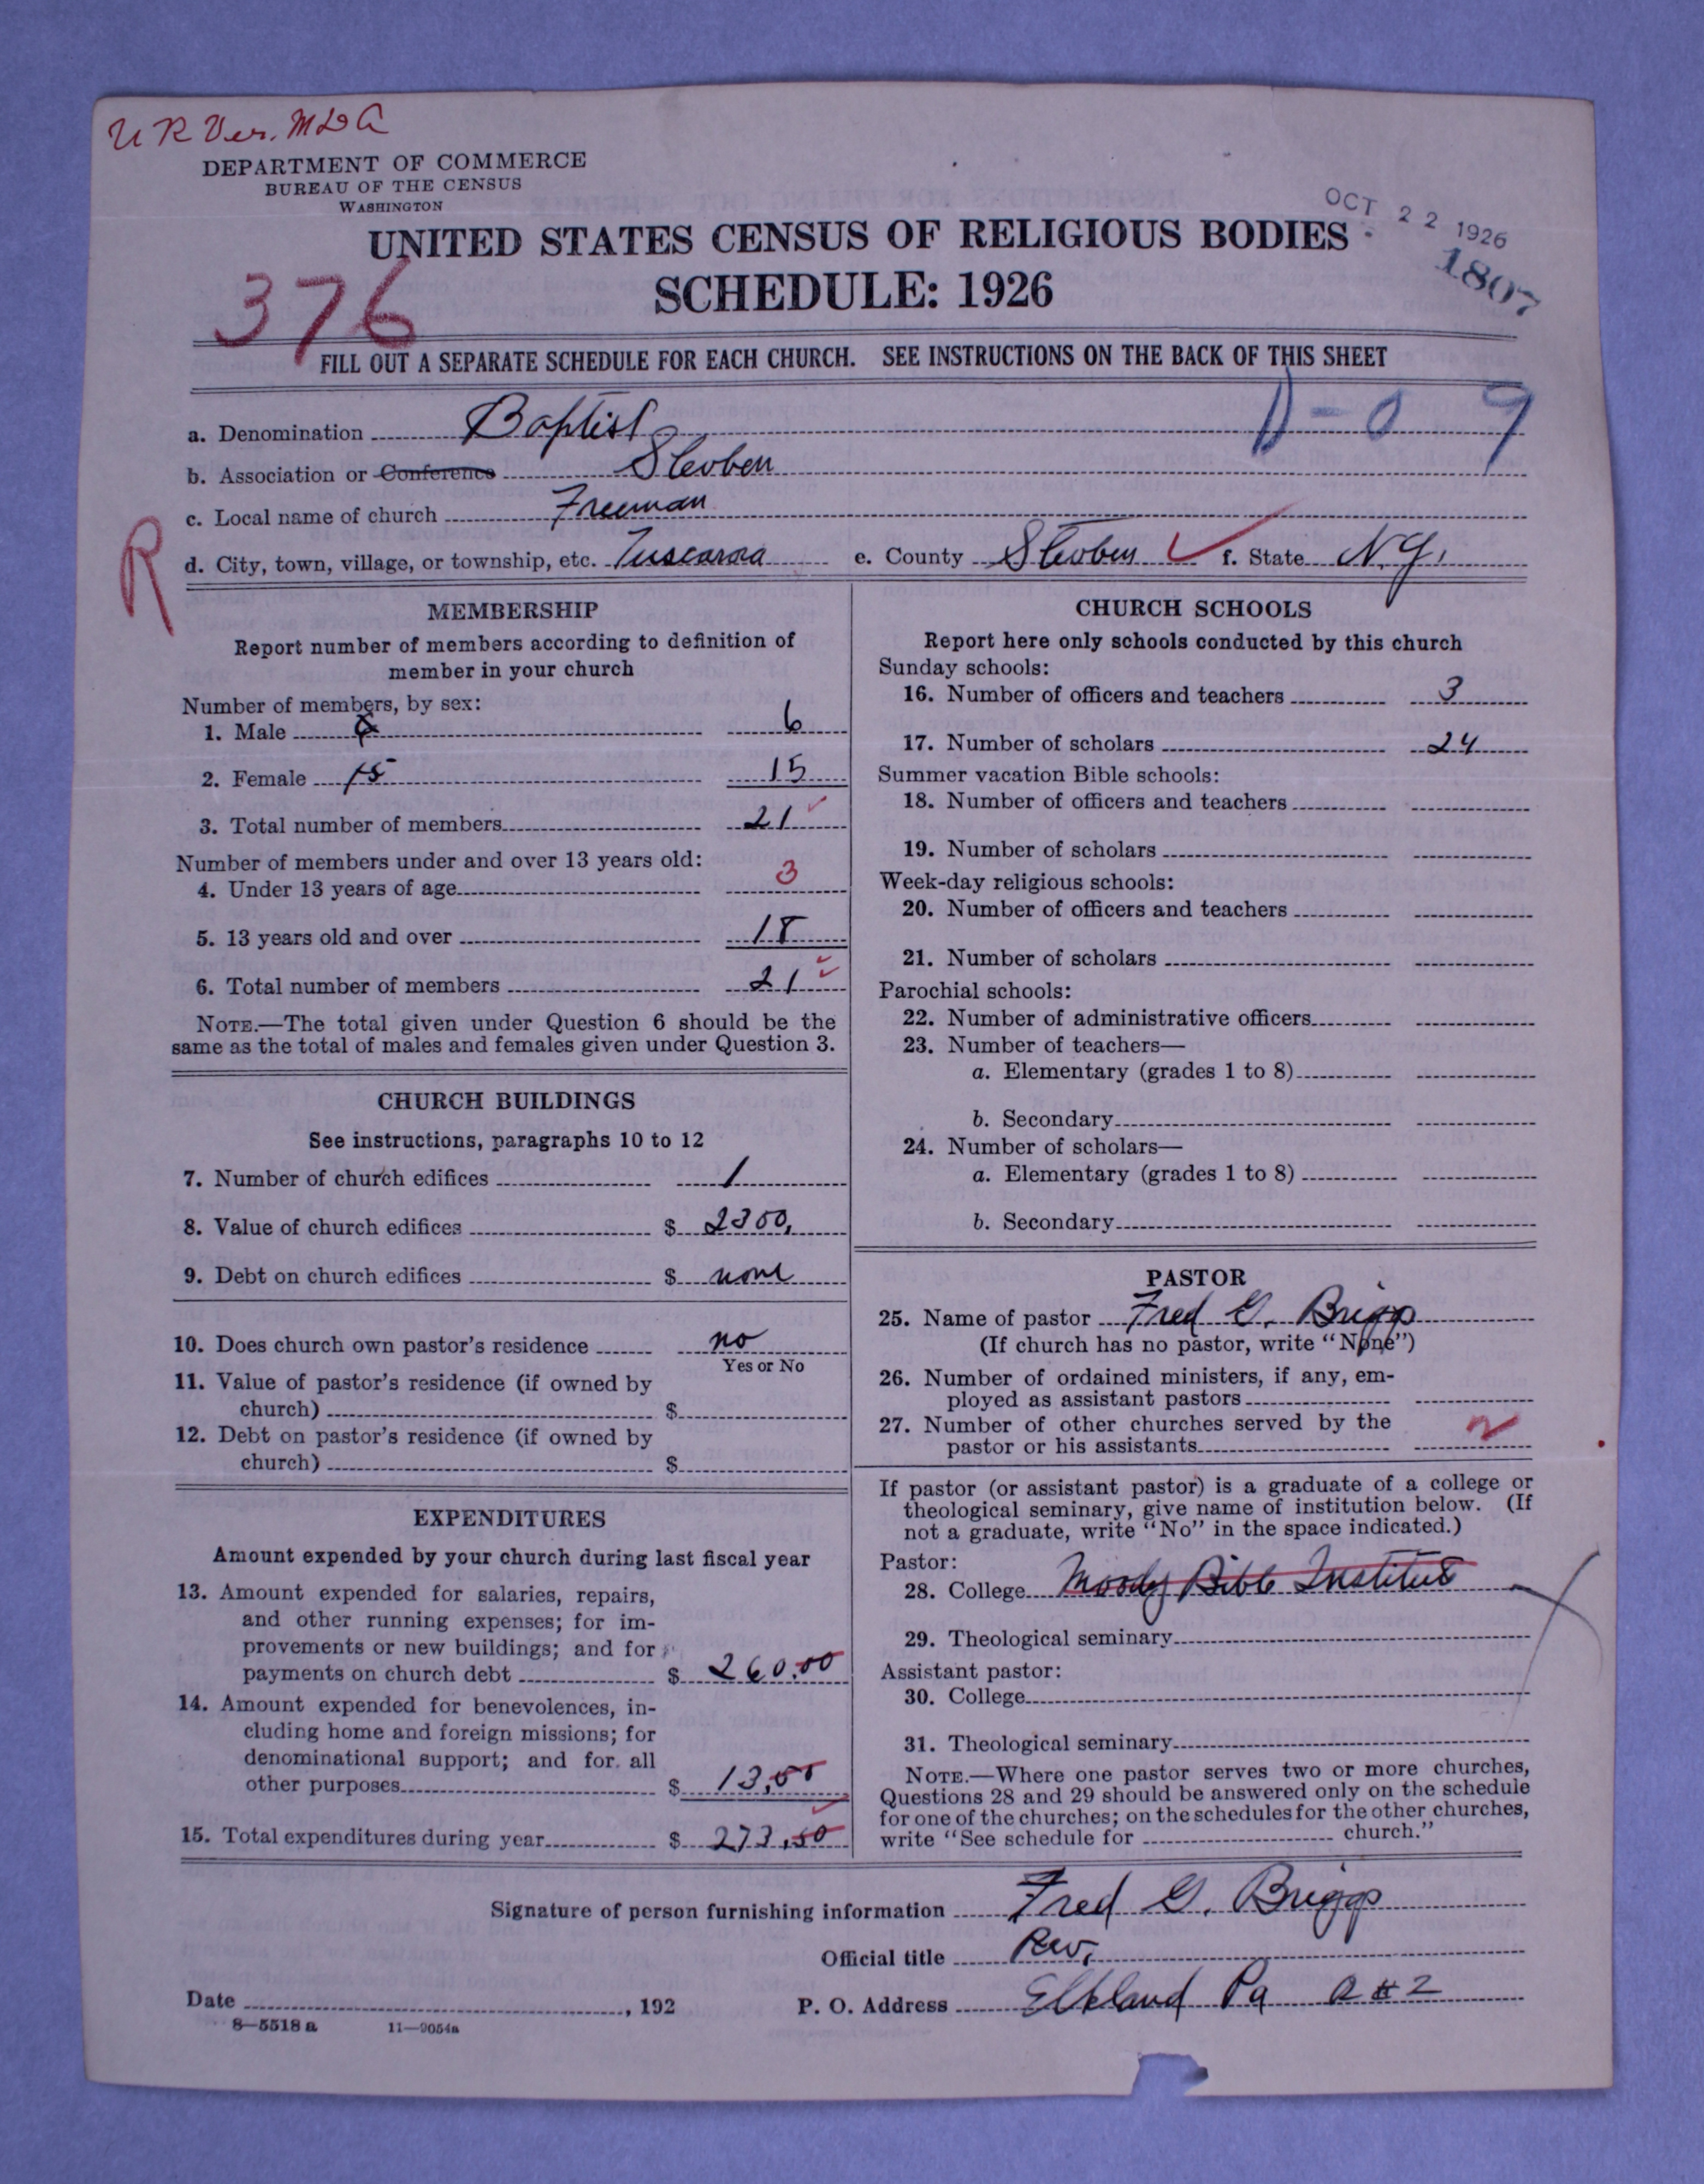 U R Ver. M D A
DEPARTMENT OF COMMERCE
BUREAU OF THE CENSUS
WASHINGTON
OCT 22 1926
1807
UNITED STATES CENSUS OF RELIGIOUS BODIES
SCHEDULE: 1926
376
FILL OUT A SEPARATE SCHEDULE FOR EACH CHURCH. SEE INSTRUCTIONS ON THE BACK OF THIS SHEET
D-09
a. Denomination Baptist
b. Association or Conference Steuben
c. Local name of church Freeman
R
d. City, town, village, or township, etc. Tuscarora e. County Steuben f. State N.Y.
MEMBERSHIP
Report number of members according to definition of
member in your church
Number of members, by sex:
1. Male 6
2. Female 15 15
3. Total number of members 21
Number of members under and over 13 years old:
4. Under 13 years of age 3
5. 13 years old and over 18
6. Total number of members 21
NOTE.—The total given under Question 6 should be the
same as the total of males and females given under Question 3.
CHURCH BUILDINGS
See instructions, paragraphs 10 to 12
7. Number of church edifices 1
8. Value of church edifices $ 2300.
9. Debt on church edifices $ none
10. Does church own pastor's residence no
Yes or No
11. Value of pastor's residence (if owned by
church) $
12. Debt on pastor's residence (if owned by
church) $
EXPENDITURES
Amount expended by your church during last fiscal year
13. Amount expended for salaries, repairs,
and other running expenses; for im-
provements or new buildings; and for
payments on church debt $ 260.00
14. Amount expended for benevolences, in-
cluding home and foreign missions; for
denominational support; and for all
other purposes $ 13.
15. Total expenditures during year $ 273.50
CHURCH SCHOOLS
Report here only schools conducted by this church
Sunday schools:
16. Number of officers and teachers 3
17. Number of scholars 24
Summer vacation Bible schools:
18. Number of officers and teachers
19. Number of scholars
Week-day religious schools:
20. Number of officers and teachers
21. Number of scholars
Parochial schools:
22. Number of administrative officers
23. Number of teachers—
a. Elementary (grades 1 to 8)
b. Secondary
24. Number of scholars—
a. Elementary (grades 1 to 8)
b. Secondary
PASTOR
25. Name of pastor Fred G. Briggs
(If church has no pastor, write "None")
26. Number of ordained ministers, if any, em-
ployed as assistant pastors
27. Number of other churches served by the
pastor or his assistants
If pastor (or assistant pastor) is a graduate of a college or
theological seminary, give name of institution below. (If
not a graduate, write "No" in the space indicated.)
Pastor:
28. College Moody Bible Institute
29. Theological seminary
Assistant pastor:
30. College
31. Theological seminary
NOTE.—Where one pastor serves two or more churches,
Questions 28 and 29 should be answered only on the schedule
for one of the churches; on the schedules for the other churches,
write "See schedule for church."
Signature of person furnishing information Fred G. Briggs
Official title Rev.
Date , 192 P. O. Address Elkland Pa R #2
8—5518 a 11—9054a